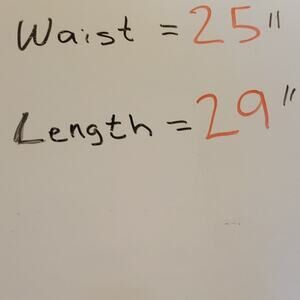 Waist = 25"
Length = 29"